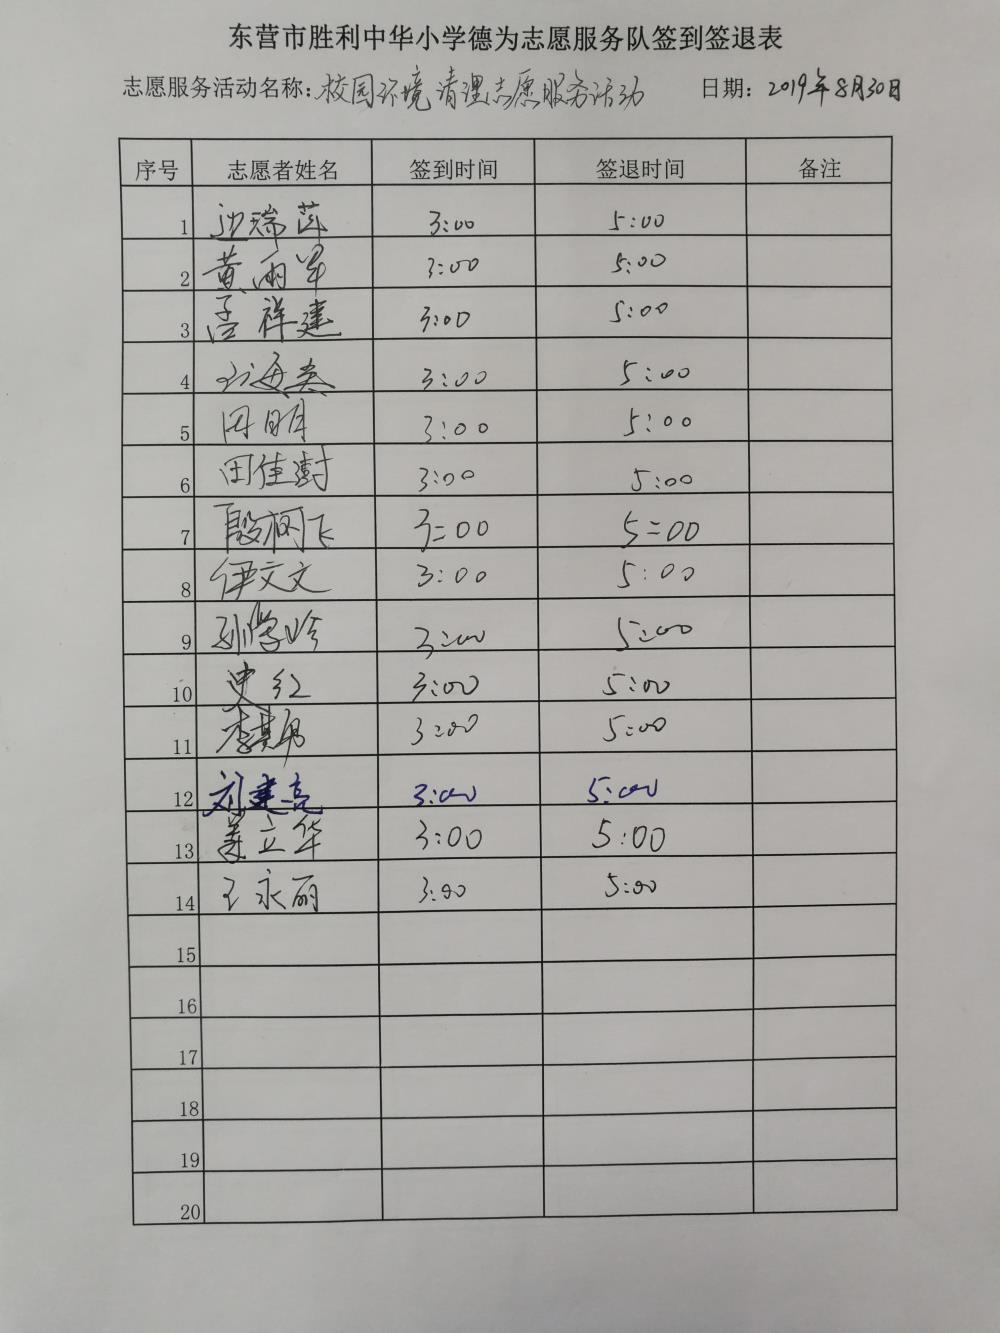 东营市胜利中华小学德为志愿服务队签到签退表
志愿服务活动名称：校园环境清理志愿服务活动 日期：2019年8月30日
序号 志愿者姓名 签到时间 签退时间 备注
1 边瑞 3:00 5:00
2 黄雨 3:00 5:00
3 孟祥建 3:00 5:00
4 海英 3:00 5:00
5 田明 3:00 5:00
6 田佳澍 3:00 5:00
7 殷树飞 3:00 5:00
8 伊文文 3:00 5:00
9 孙学玲 3:00 5:00
10 史红 3:00 5:00
11 李其 3:00 5:00
12 刘建亮 3:00 5:00
13 姜立华 3:00 5:00
14 王永丽 3:00 5:00
15
16
17
18
19
20